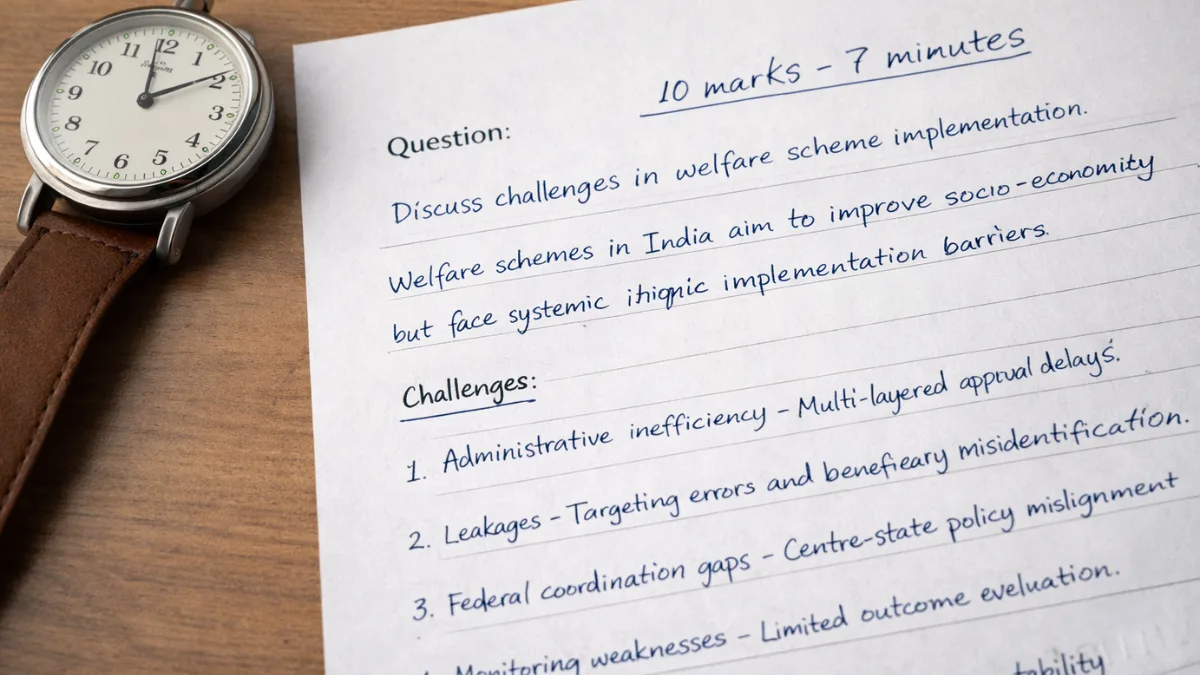 12
1
2
3
4
5
6
7
8
9
10
11
10 marks - 7 minutes
Question:
Discuss challenges in welfare scheme implementation.
Welfare schemes in India aim to improve socio-economity
but face systemic implementation barriers.
Challenges:
1. Administrative inefficiency - Multi-layered delays.
2. Leakages - Targeting errors and misidentification.
3. Federal coordination gaps - Centre-state policy mislignment
Monitoring weaknesses - Limited outcome eveluation.